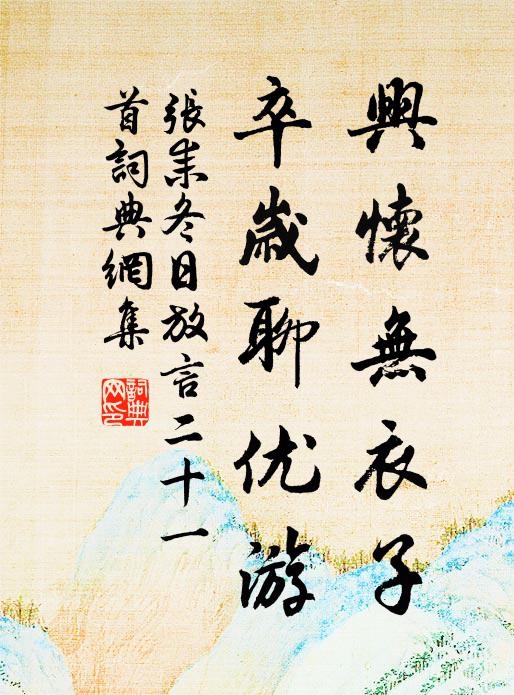 興懷無衣子
卒歲聊优游
張耒冬日放言二十一
首詞典網集
詞典
网印